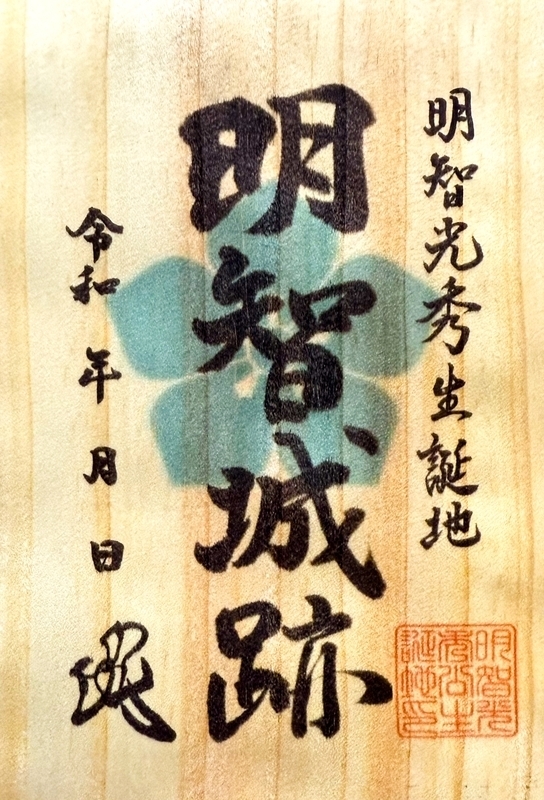 明智光秀生誕地
明智城跡
令和 年 月 日
明智光
秀公生
誕地之印